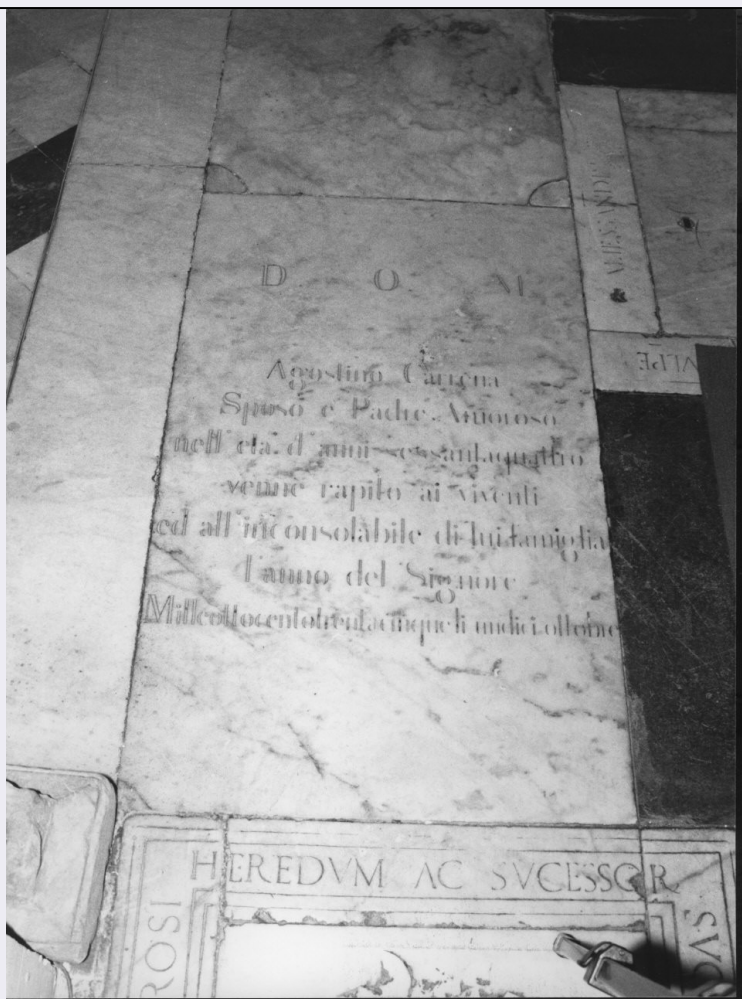 D O M
Agostino Carrena
Sposo e Padre Amoroso
nell età d anni sessantaquattro
venne rapito ai viventi
ed all inconsolabile di lui famiglia
l anno del Signore
Milleottocentotrentacinque li undici ottobre
HEREDVM AC SVCESSOR
ROSI